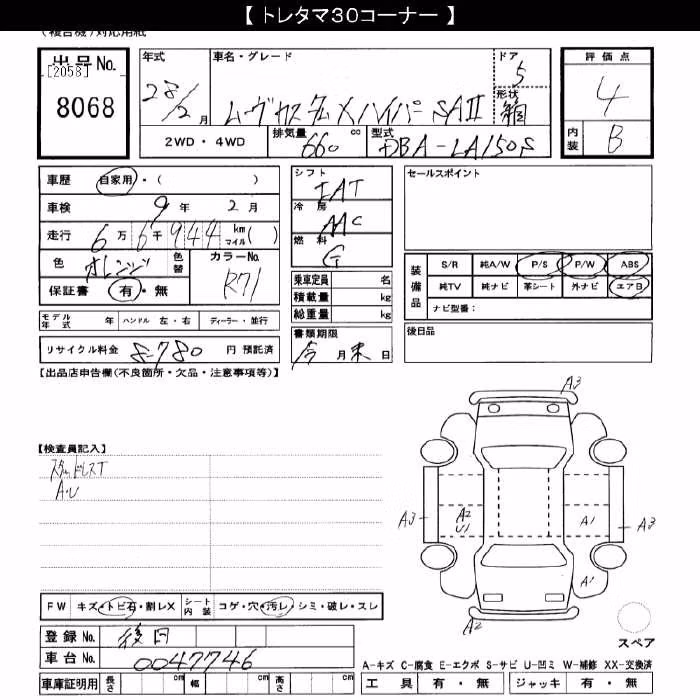 【 トレタマ30コーナー 】
(複合紙)対応用紙
出品No.
[2058]
8068
年式
28/2月
車名・グレード
ムーヴカスタムXハイパーSAⅡ
ドア
5
形状
箱
2WD・4WD
排気量
660 cc
型式
DBA-LA150S
評価点
4
内装
B
車歴 自家用・( )
車検 9年 2月
走行 6万6千944 km マイル( )
色 オレンジ 色替
カラーNo.
R71
保証書 有・無
シフト
IAT
冷房
AAC
燃料
G
乗車定員 名
積載量 kg
総重量 kg
セールスポイント
装備品
S/R 純A/W P/S P/W ABS
純TV 純ナビ 革シート 外ナビ エアB
ナビ型番:
モデル年式 年 ハンドル 左・右 ディーラー・並行
リサイクル料金 8-780 円 預託済
書類期限
今月末日
後日品
【出品店申告欄(不良箇所・欠品・注意事項等)】
【検査員記入】
スタッドレスT
A・U
A3
A3
A2
U1
A1
A3
A1
A2
FW キズ・トビ石・割レX シート内装 コゲ・穴・汚レ・シミ・破レ・スレ
登録No. 後日
車台No. 0047746
車庫証明用 長さ cm 幅 cm 高さ cm
スペア
A-キズ C-腐食 E-エクボ S-サビ U-凹ミ W-補修 XX-交換済
工具 有・無 ジャッキ 有・無